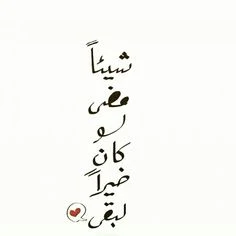 شيئاً
مضى
لو
كان
خيراً
لبقى